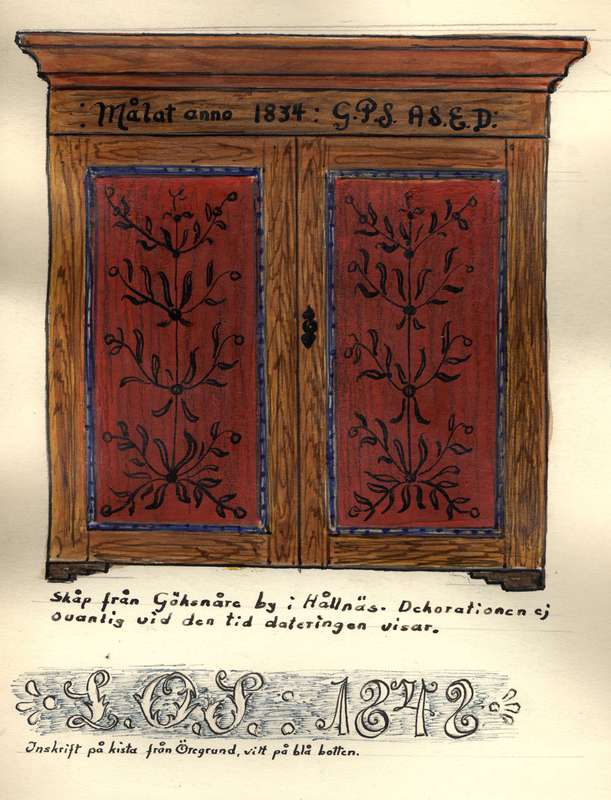 : Målat anno 1834: G.P.S. A.S.E.D:
Skåp från Göksnåre by i Hållnäs. Dekorationen ej
ovanlig vid den tid dateringen visar.
L.O.S. 1848
Inskrift på kista från Öregrund, vitt på blå botten.